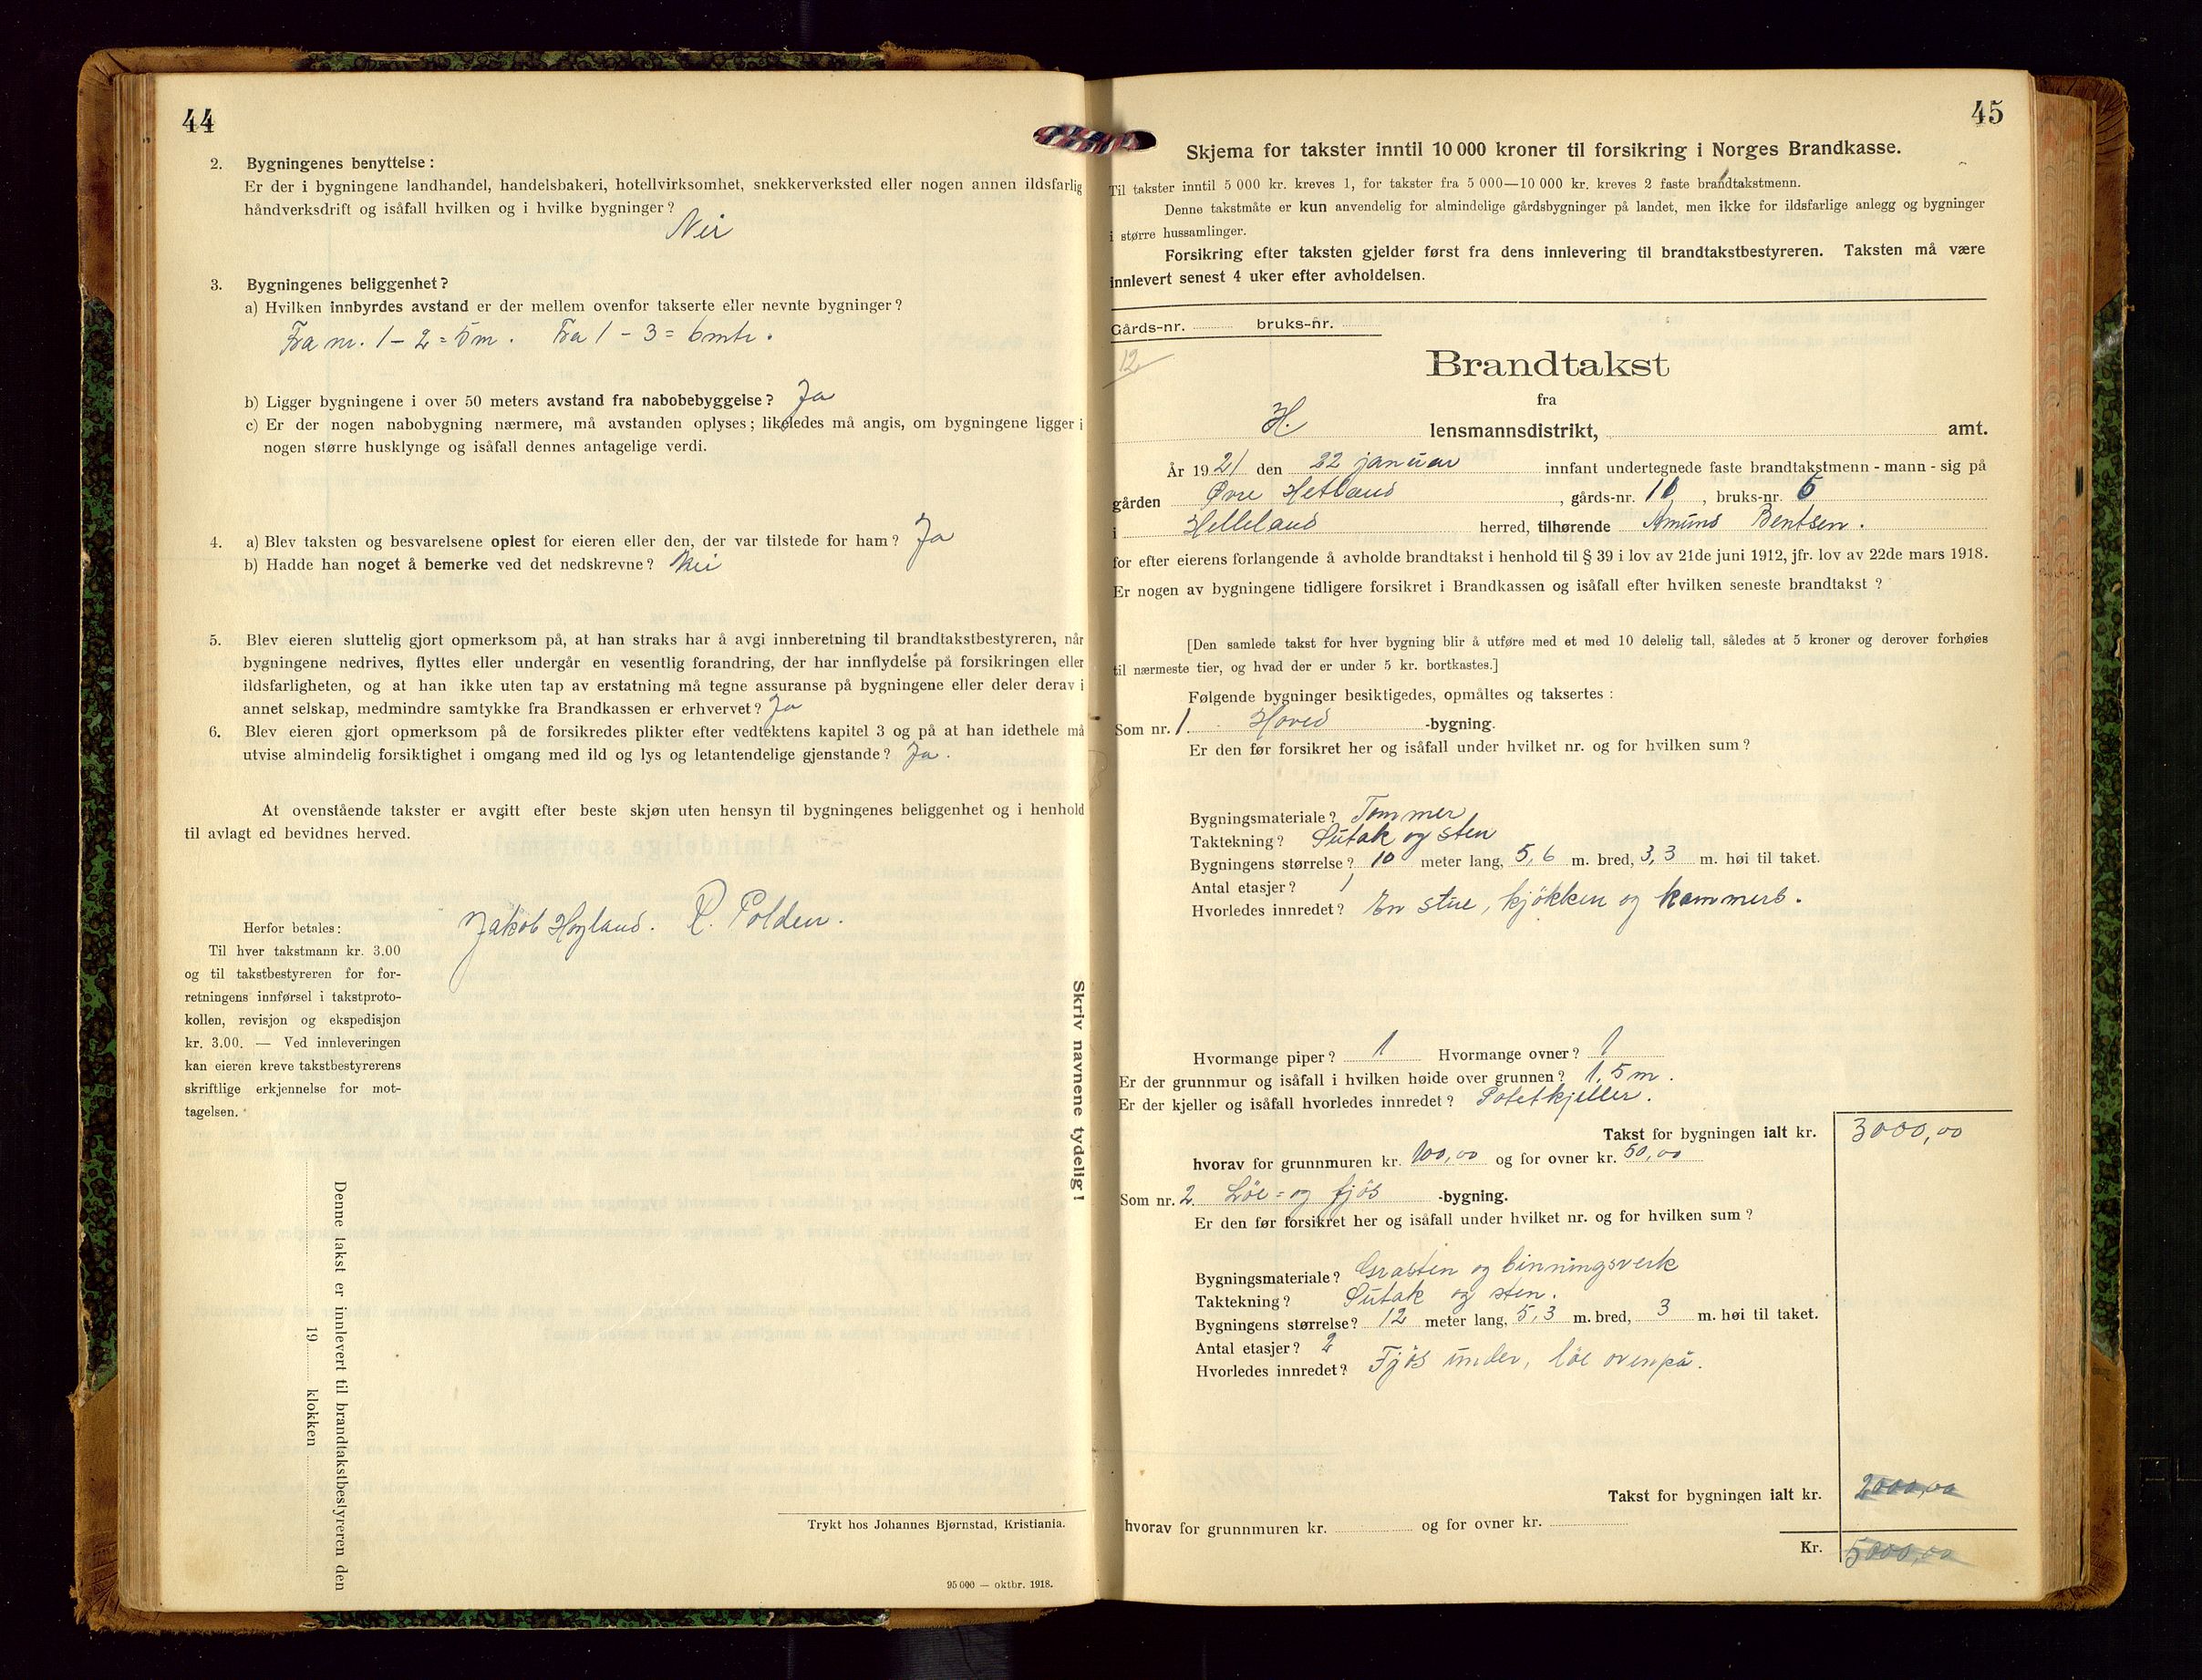 44
2. Bygningenes benyttelse:
Er der i bygningene landhandel, handelsbakeri, hotellvirksomhet, snekkerverksted eller nogen annen ildsfarlig
håndverksdrift og isåfall hvilken og i hvilke bygninger?
Nei
3. Bygningenes beliggenhet?
a) Hvilken innbyrdes avstand er der mellem ovenfor takserte eller nevnte bygninger?
Fra nr. 1 – 2 = 5 m. Fra 1 – 3 = 6 mtr.
b) Ligger bygningene i over 50 meters avstand fra nabobebyggelse? Ja
c) Er der nogen nabobygning nærmere, må avstanden oplyses; likeledes må angis, om bygningene ligger i
nogen større husklynge og isåfall dennes antagelige verdi.
4. a) Blev taksten og besvarelsene oplest for eieren eller den, der var tilstede for ham? Ja
b) Hadde han noget å bemerke ved det nedskrevne? Nei
5. Blev eieren sluttelig gjort opmerksom på, at han straks har å avgi innberetning til brandtakstbestyreren, når
bygningene nedrives, flyttes eller undergår en vesentlig forandring, der har innflydelse på forsikringen eller
ildsfarligheten, og at han ikke uten tap av erstatning må tegne assuranse på bygningene eller deler derav i
annet selskap, medmindre samtykke fra Brandkassen er erhvervet? Ja
6. Blev eieren gjort opmerksom på de forsikredes plikter efter vedtektens kapitel 3 og på at han idethele må
utvise almindelig forsiktighet i omgang med ild og lys og letantendelige gjenstande? Ja.
At ovenstående takster er avgitt efter beste skjøn uten hensyn til bygningenes beliggenhet og i henhold
til avlagt ed bevidnes herved.
Jakob Høyland. P. Polden.
Herfor betales:
Til hver takstmann kr. 3.00
og til takstbestyreren for for-
retningens innførsel i takstproto-
kollen, revisjon og ekspedisjon
kr. 3.00. — Ved innleveringen
kan eieren kreve takstbestyrerens
skriftlige erkjennelse for mot-
tagelsen.
Skriv navnene tydelig!
Denne takst er innlevert til brandtakstbestyreren den
19 klokken
Trykt hos Johannes Bjørnstad, Kristiania.
95 000 — oktbr. 1918.
45
Skjema for takster inntil 10 000 kroner til forsikring i Norges Brandkasse.
Til takster inntil 5 000 kr. kreves 1, for takster fra 5 000—10 000 kr. kreves 2 faste brandtakstmenn.
Denne takstmåte er kun anvendelig for almindelige gårdsbygninger på landet, men ikke for ildsfarlige anlegg og bygninger
i større hussamlinger.
Forsikring efter taksten gjelder først fra dens innlevering til brandtakstbestyreren. Taksten må være
innlevert senest 4 uker efter avholdelsen.
Gårds-nr. bruks-nr.
12
Brandtakst
fra
H. lensmannsdistrikt, amt.
År 1921 den 22 januar innfant undertegnede faste brandtakstmenn - mann - sig på
gården Øvre Hetland, gårds-nr. 10, bruks-nr. 6
i Helleland herred, tilhørende Amund Bentsen.
for efter eierens forlangende å avholde brandtakst i henhold til § 39 i lov av 21de juni 1912, jfr. lov av 22de mars 1918.
Er nogen av bygningene tidligere forsikret i Brandkassen og isåfall efter hvilken seneste brandtakst?
[Den samlede takst for hver bygning blir å utføre med et med 10 delelig tall, således at 5 kroner og derover forhøies
til nærmeste tier, og hvad der er under 5 kr. bortkastes.]
Følgende bygninger besiktigedes, opmåltes og taksertes:
Som nr. 1 Hoved -bygning.
Er den før forsikret her og isåfall under hvilket nr. og for hvilken sum?
Bygningsmateriale? Tømmer
Taktekning? Sutak og sten
Bygningens størrelse? 10 meter lang, 5,6 m. bred, 3,3 m. høi til taket.
Antal etasjer? 1
Hvorledes innredet? En stue, kjøkken og kammers.
Hvormange piper? 1 Hvormange ovner? 1
Er der grunnmur og isåfall i hvilken høide over grunnen? 1,5 m.
Er der kjeller og isåfall hvorledes innredet? Potetkjeller.
Takst for bygningen ialt kr. 3000,00
hvorav for grunnmuren kr. 100,00 og for ovner kr. 50,00
Som nr. 2 Løe- og fjøs -bygning.
Er den før forsikret her og isåfall under hvilket nr. og for hvilken sum?
Bygningsmateriale? Gråsten og binningsverk
Taktekning? Sutak og sten.
Bygningens størrelse? 12 meter lang, 5,3 m. bred, 3 m. høi til taket.
Antal etasjer? 2
Hvorledes innredet? Fjøs under, løe ovenpå.
Takst for bygningen ialt kr. 2000,00
hvorav for grunnmuren kr. og for ovner kr.
Kr. 5000,00